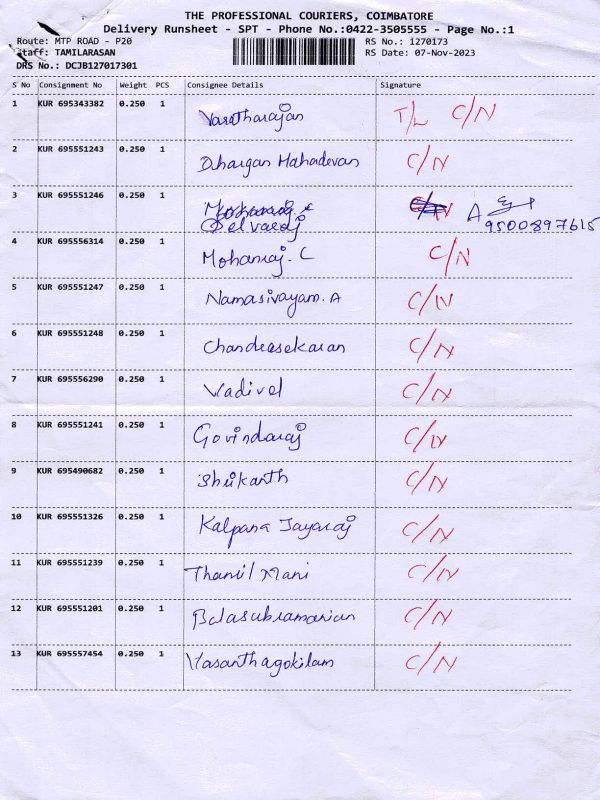 THE PROFESSIONAL COURIERS, COIMBATORE
Delivery Runsheet - SPT - Phone No.:0422-3505555 - Page No.:1
Route: MTP ROAD - P20 RS No.: 1270173
Staff: TAMILARASAN RS Date: 07-Nov-2023
DRS No.: DCJB127017301
S No Consignment No Weight PCS Consignee Details Signature
1 KUR 695343382 0.250 1 Varatharajan T/L C/N
2 KUR 695551243 0.250 1 Dhargan Mahadevan C/N
3 KUR 695551246 0.250 1 Selvaraj C/N A
9500897615
4 KUR 695556314 0.250 1 Mohanraj. C C/N
5 KUR 695551247 0.250 1 Namasivayam. A C/N
6 KUR 695551248 0.250 1 Chandrasekaran C/N
7 KUR 695556290 0.250 1 Vadivel C/N
8 KUR 695551241 0.250 1 Govindaraj C/N
9 KUR 695490682 0.250 1 Shrikanth C/N
10 KUR 695551326 0.250 1 Kalpana Jayaraj C/N
11 KUR 695551239 0.250 1 Thamil Mani C/N
12 KUR 695551201 0.250 1 Balasubramanian C/N
13 KUR 695557454 0.250 1 Vasanthagokilam C/N